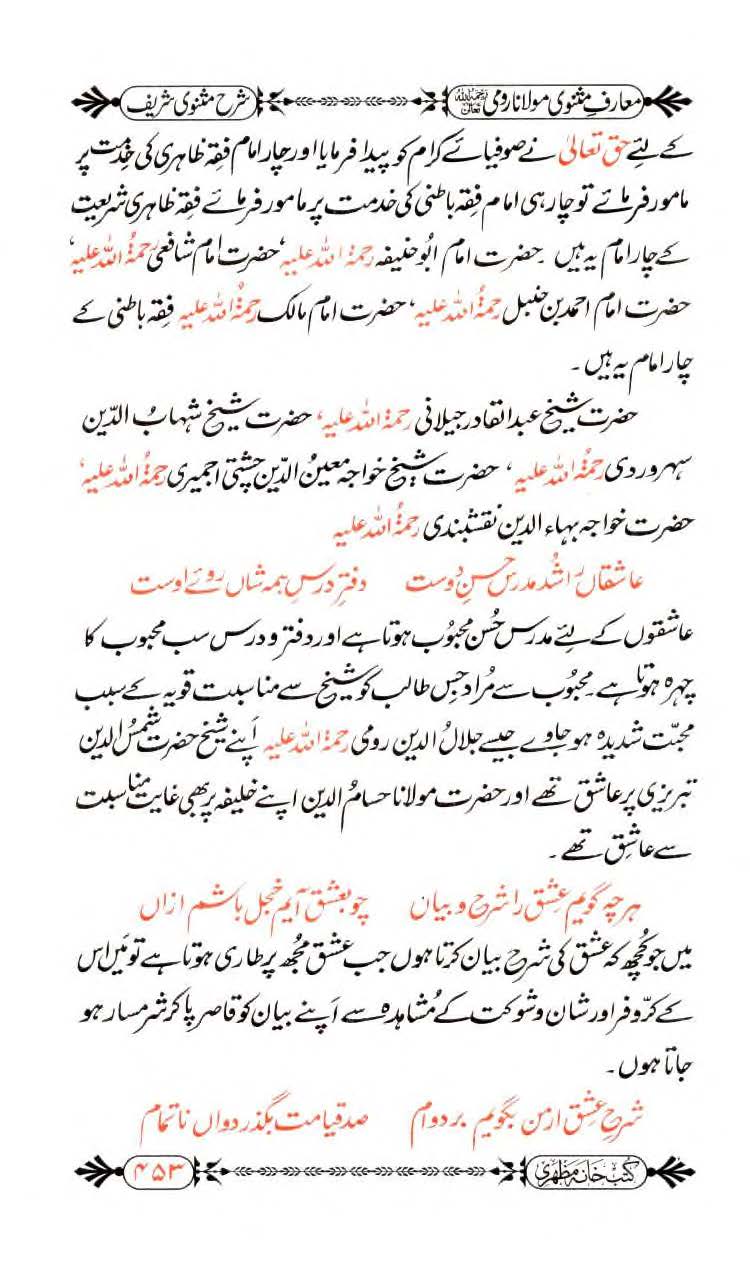 معارفِ مثنوی مولانا رومی رحمۃ اللہ تعالیٰ شرح مثنوی شریف
کے لئے حق تعالیٰ نے صوفیائے کرام کو پیدا فرمایا اور چار امام فقہ ظاہری کی خدمت پر
مامور فرمائے تو چار ہی امام فقہ باطنی کی خدمت پر مامور فرمائے فقہ ظاہری شریعت
کے چار امام یہ ہیں ۔ حضرت امام ابُو حنیفہ رحمۃُ اللہ علیہ، حضرت امام شافعی رحمۃُ اللہ علیہ،
حضرت امام احمد بن حنبل رحمۃُ اللہ علیہ، حضرت امام مالک رحمۃُ اللہ علیہ فقہ باطنی کے
چار امام یہ ہیں ۔
حضرت شیخ عبدالقادر جیلانی رحمۃُ اللہ علیہ، حضرت شیخ شہابُ الدّین
سہروردی رحمۃُ اللہ علیہ، حضرت شیخ خواجہ معینُ الدّین چشتی اجمیری رحمۃُ اللہ علیہ،
حضرت خواجہ بہاء الدین نقشبندی رحمۃُ اللہ علیہ
عاشقاں را شُد مدرس حسنِ دوست دفترِ درسِ ہمہ شاں روئے اوست
عاشقوں کے لئے مدرس حُسن محبُوب ہوتا ہے اور دفتر و درس سب محبوب کا
چہرہ ہوتا ہے ۔ محبُوب سے مُراد جس طالب کو شیخ سے مناسبت قویہ کے سبب
محبّت شدیدہ ہو جاوے جیسے جلالُ الدین رومی رحمۃُ اللہ علیہ اَپنے شیخ حضرت شمسُ الدین
تبریزی پر عاشق تھے اور حضرت مولانا حسامُ الدین اپنے خلیفہ پر بھی غایت مناسبت
سے عاشِق تھے ۔
ہرچہ گویم عِشق را شرح و بیان چوں بعشق آیم خجل باشم ازاں
میں جو کُچھ کہ عشق کی شرح بیان کرتا ہوں جب عشق مجُھ پر طاری ہوتا ہے تو میَں اس
کے کرّوفر اور شان و شوکت کے مُشاہدہ سے اَپنے بیان کو قاصر پا کر شرمسار ہو
جاتا ہوں ۔
شرحِ عِشق از من بگویم بر دوام صد قیامت بگذرد واں ناتمام
کُتب خانہ مظہری ۴۵۳